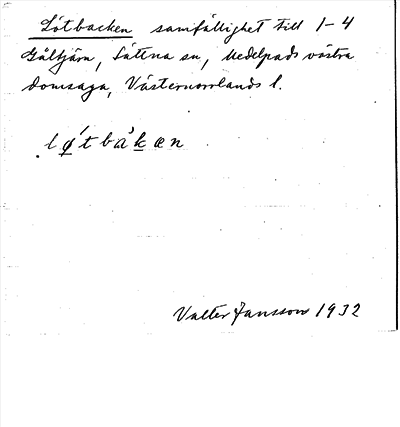 Lötbacken samfällighet till 1-4
Gåltjärn, Sättna sn, Medelpads västra
domsaga, Västernorrlands l.
.lǿtbàkæn
Valter Jansson 1932